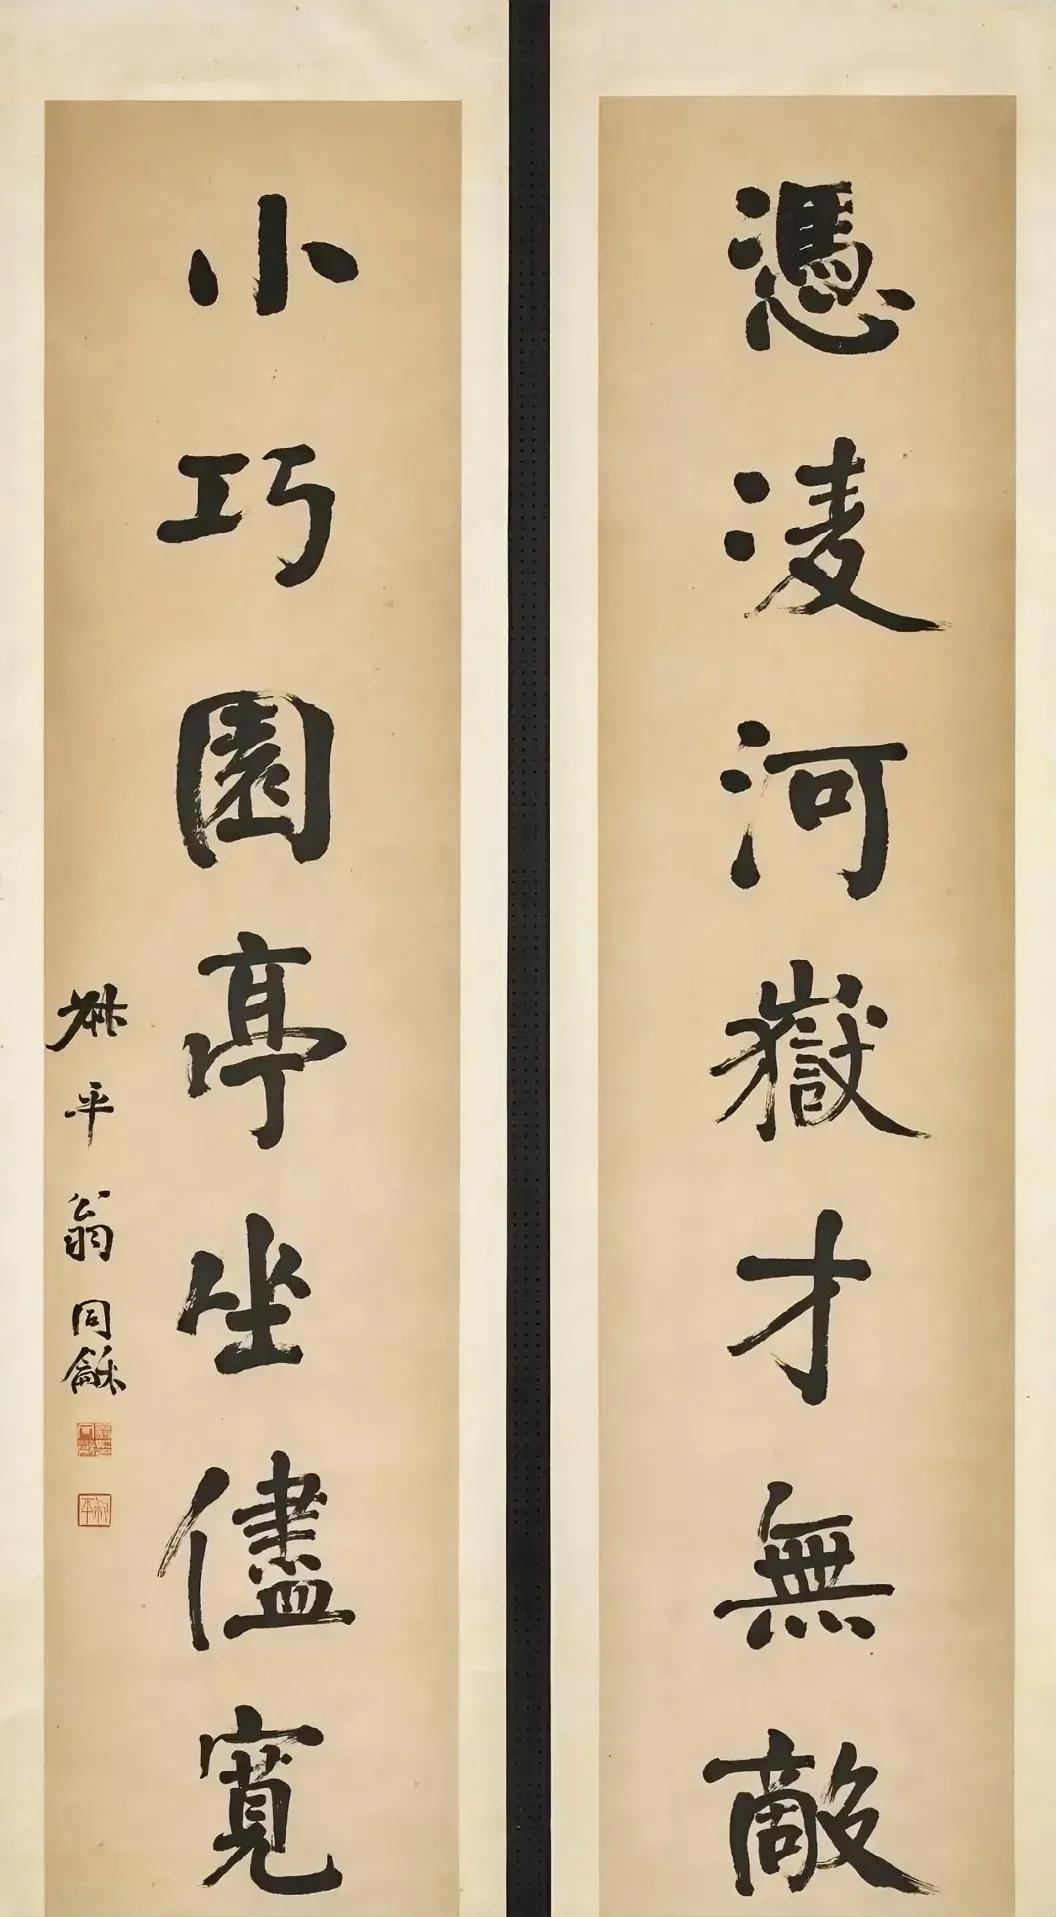 憑凌河嶽才無敵
小巧園亭坐儘寬
叔平翁同龢